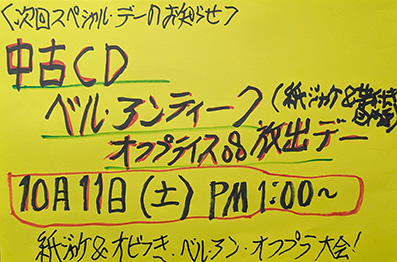 ＜次回スペシャル・デーのお知らせ＞
中古CD
ベル・アンティーク
(紙ジャケ&
オフプライス品放出デー
10月11日(土) PM 1:00～
紙ジャケ&オビつき・ベル・アン・オフプラ大会!